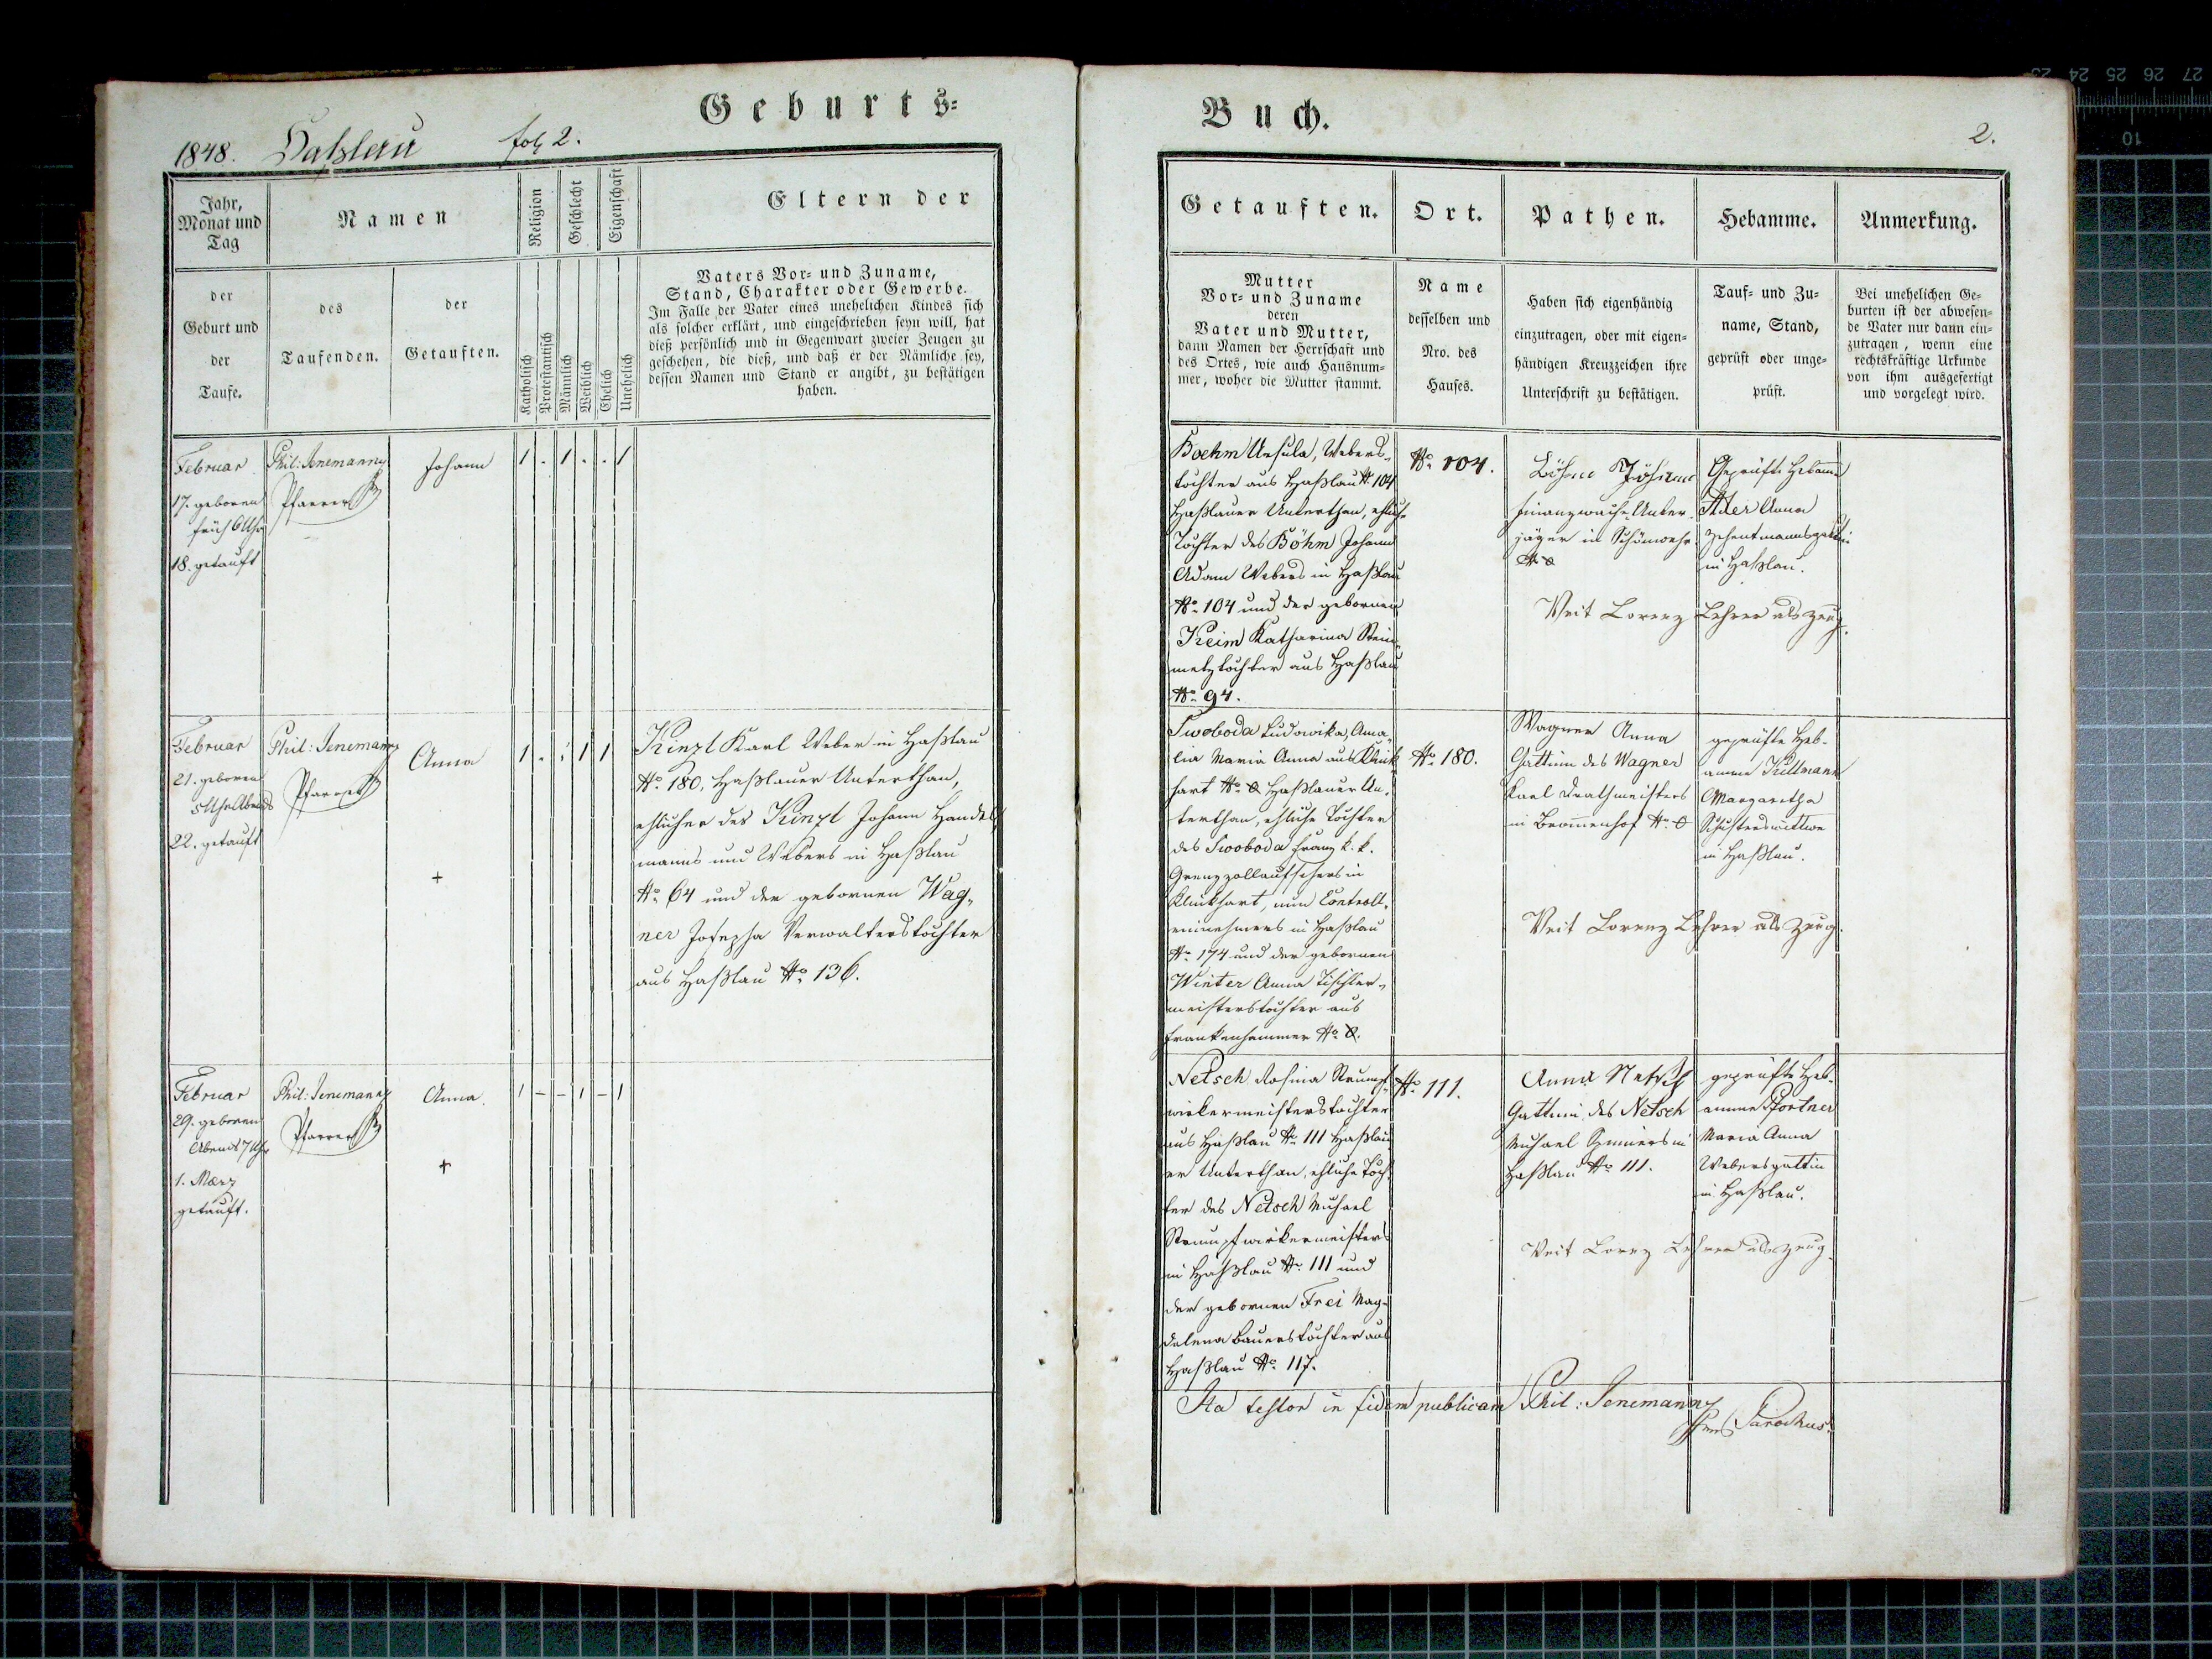 Geburts-
1848. Haßlau fol 2.
Jahr, Monat und Tag
Namen
Religion
Geschlecht
Eigenschaft
Eltern der
der Geburt und der Taufe.
des Taufenden.
der Getauften.
Katholisch
Protestantisch
Männlich
Weiblich
Ehelich
Unehelich
Vaters Vor- und Zuname,
Stand, Charakter oder Gewerbe.
Im Falle der Vater eines unehelichen Kindes sich
als solcher erklärt, und eingeschrieben seyn will, hat
dieß persönlich und in Gegenwart zweier Zeugen zu
geschehen, die dieß, und daß er der Nämliche sey,
dessen Namen und Stand er angibt, zu bestätigen
haben.
Februar
17. geboren
früh 6 Uhr
18. getauft
Phil: Jenemann
Pfarrer
Johann
1 . 1 . . 1
Februar
21. geboren
5 Uhr Abends
22. getauft
Phil: Jenemann
Pfarrer
Anna
+
1 . . 1 1
Kinzl Karl Weber in Haßlau
No. 180, Haßlauer Unterthan,
ehlicher des Kinzl Johann Handels
manns und Webers in Haßlau
No. 64 und der gebornen Wag-
ner Josepha Verwalterstochter
aus Haßlau No. 136.
Februar
29. geboren
Abends 7 Uhr
1. März
getauft.
Phil: Jenemann
Pfarrer
Anna.
+
1 - - 1 - 1
Buch.
2.
Getauften.
Ort.
Pathen.
Hebamme.
Anmerkung.
Mutter
Vor- und Zuname
deren
Vater und Mutter,
dann Namen der Herrschaft und
des Ortes, wie auch Hausnum-
mer, woher die Mutter stammt.
Name
desselben und
Nro. des
Hauses.
Haben sich eigenhändig
einzutragen, oder mit eigen-
händigen Kreuzzeichen ihre
Unterschrift zu bestätigen.
Tauf- und Zu-
name, Stand,
geprüft oder unge-
prüft.
Bei unehelichen Ge-
burten ist der abwesen-
de Vater nur dann ein-
zutragen, wenn eine
rechtskräftige Urkunde
von ihm ausgefertigt
und vorgelegt wird.
Boehm Ursula, Webers-
tochter aus Haßlau No. 104
Haßlauer Unterthan, ehliche
Tochter des Böhm Johann
Adam Webers in Haßlau
No. 104 und der gebornen
Keim Katharina Stein-
metztochter aus Haßlau
No. 94.
No. 104.
Böhm Johann
Finanzwache Unter-
jäger in
Veit Lorenz Lehrer als Zeug.
Geprüfte Hebamme
Ader Anna
in Haßlau.
Swoboda Ludowika, Ama-
lia Maria Anna aus Klink
hart No. 0 Haßlauer Un-
terthan, ehliche Tochter
des Swoboda Franz k. k.
Grenzzollaufsehers in
Klinkhart, nun Controll-
einnehmers in Haßlau
No. 174 und der gebornen
Winter Anna Tischler-
meisterstochter aus
Frankenhammer No. 0.
No. 180.
Wagner Anna
Gattin des Wagner
Karl
in No. 0
Veit Lorenz Lehrer als Zeug.
geprüfte Heb-
amme Küttmann
Margaretha
Schusterswittwe
in Haßlau.
Netsch Rosina Strumpf-
wirkermeisterstochter
aus Haßlau No. 111 Haßlau
er Unterthan, ehliche Toch-
ter des Netsch Michael
Strumpfwirkermeisters
in Haßlau No. 111 und
der gebornen Frei Mag-
dalena Bauerstochter aus
Haßlau No. 117.
No. 111.
Anna Netsch
Gattin des Netsch
Michael in
Haßlau No. 111.
Veit Lorenz Lehrer als Zeug.
geprüfte Heb-
amme Pfortner
Maria Anna
Webersgattin
in Haßlau.
Ita testor in fidem publicam Phil: Jenemann
Parochus.